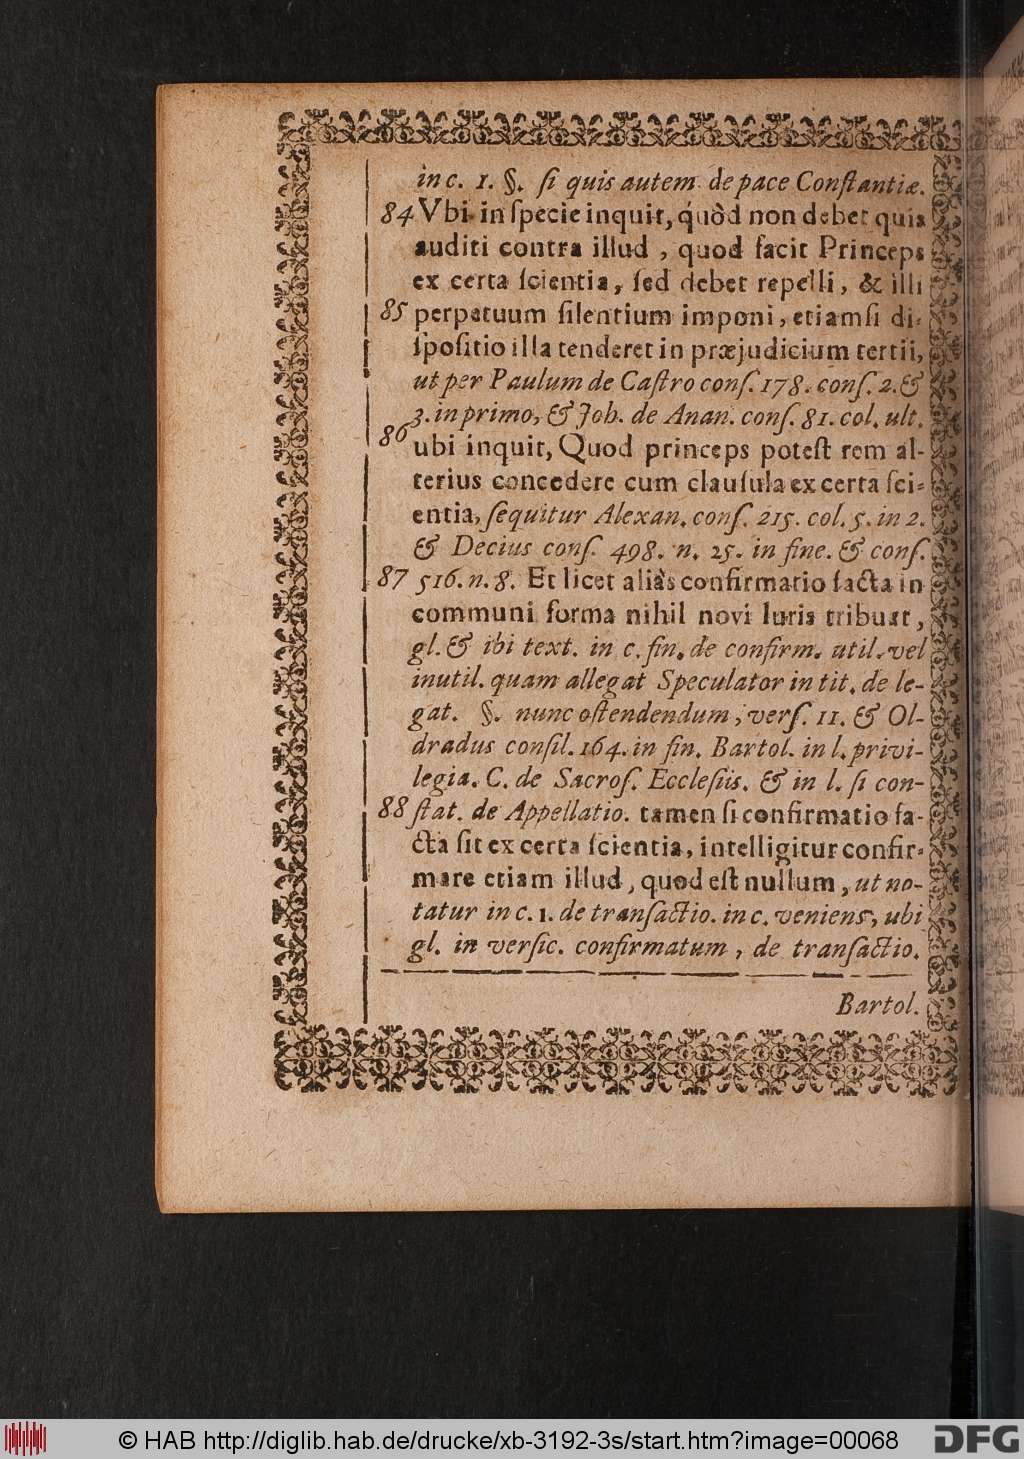 in c. 1. §. ſi quis autem de pace Conſtantiæ.
84 Vbi in ſpecie inquit, quòd non debet quis
auditi contra illud , quod facit Princeps
ex certa ſcientia, ſed debet repelli, & illi
85 perpetuum ſilentium imponi, etiamſi di-
ſpoſitio illa tenderet in præjudicium tertii,
ut per Paulum de Caſtro conſ. 178. conſ. 2. &
3. in primo, & Joh. de Anan. conſ. 81. col. ult.
86 ubi inquit, Quod princeps poteſt rem al-
terius concedere cum clauſula ex certa ſci-
entia, ſequitur Alexan. conſ. 215. col. 5. in 2.
& Decius conſ. 498. n. 25. in fine. & conſ.
87 516. n. 8. Et licet aliàs confirmatio facta in
communi forma nihil novi Iuris tribuat,
gl. & ibi text. in c. fin. de confirm. util. vel
inutil. quam allegat Speculator in tit. de le-
gat. §. nunc oſtendendum, verſ. 11. & Ol-
dradus conſil. 164. in fin. Bartol. in l. privi-
legia. C. de Sacroſ. Eccleſiis. & in l. ſi con-
88 ſtat. de Appellatio. tamen ſi confirmatio fa-
cta ſit ex certa ſcientia, intelligitur confir-
mare etiam illud, quod eſt nullum, ut no-
tatur in c. 1. de tranſactio. in c. veniens, ubi
gl. in verſic. confirmatum , de tranſactio.
Bartol.
© HAB http://diglib.hab.de/drucke/xb-3192-3s/start.htm?image=00068
DFG